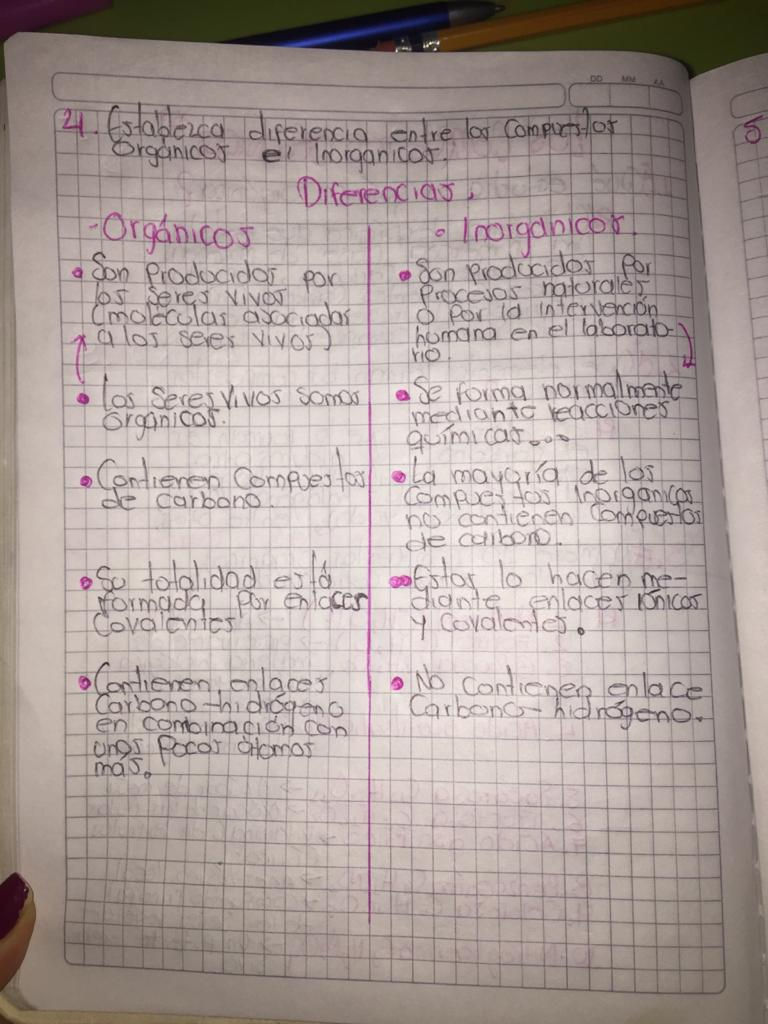 DD MM AA
4. Establezca diferencia entre los Compuestos
Orgánicos e Inorganicos.
Diferencias.
-Orgánicos
• Son Producidos por
los seres vivos
(moléculas asociadas
a los seres vivos)
• Los Seres Vivos somos
Orgánicos.
• Contienen Compuestos
de carbono.
• Su totalidad está
formada por enlaces
Covalentes
• Contienen enlaces
Carbono-hidrógeno
en combinación con
unos Pocos átomos
más.
• Inorganicos.
• Son producidos por
Procesos naturales
o por la intervención
humana en el laborato-
rio.
• Se forma normalmente
mediante reacciones
químicas....
• La mayoría de los
Compuestos Inorganicos
no contienen Compuestos
de carbono.
• Estos lo hacen me-
diante enlaces iónicos
y Covalentes.
• No Contienen enlace
Carbono-hidrógeno.
5